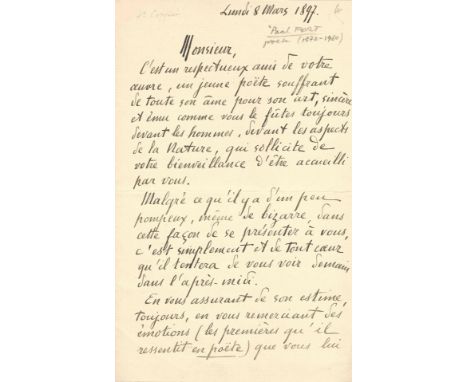 Lundi 8 Mars 1897.
"Paul FORT
poète (1872-1960)
Monsieur,
C'est un respectueux ami de votre
œuvre, un jeune poëte souffrant
de toute son âme pour son art, sincère
et ému comme vous le fûtes toujours
devant les hommes, devant les aspects
de la Nature, qui sollicite de
votre bienveillance d'être accueilli
par vous.
Malgré ce qu'il y a d'un peu
pompeux, même de bizarre, dans
cette façon de se présenter à vous,
c'est simplement et de tout cœur
qu'il tentera de vous voir demain
dans l'après-midi.
En vous assurant de son estime,
toujours, en vous remerciant des
émotions (les premières qu'il
ressentit en poëte) que vous lui